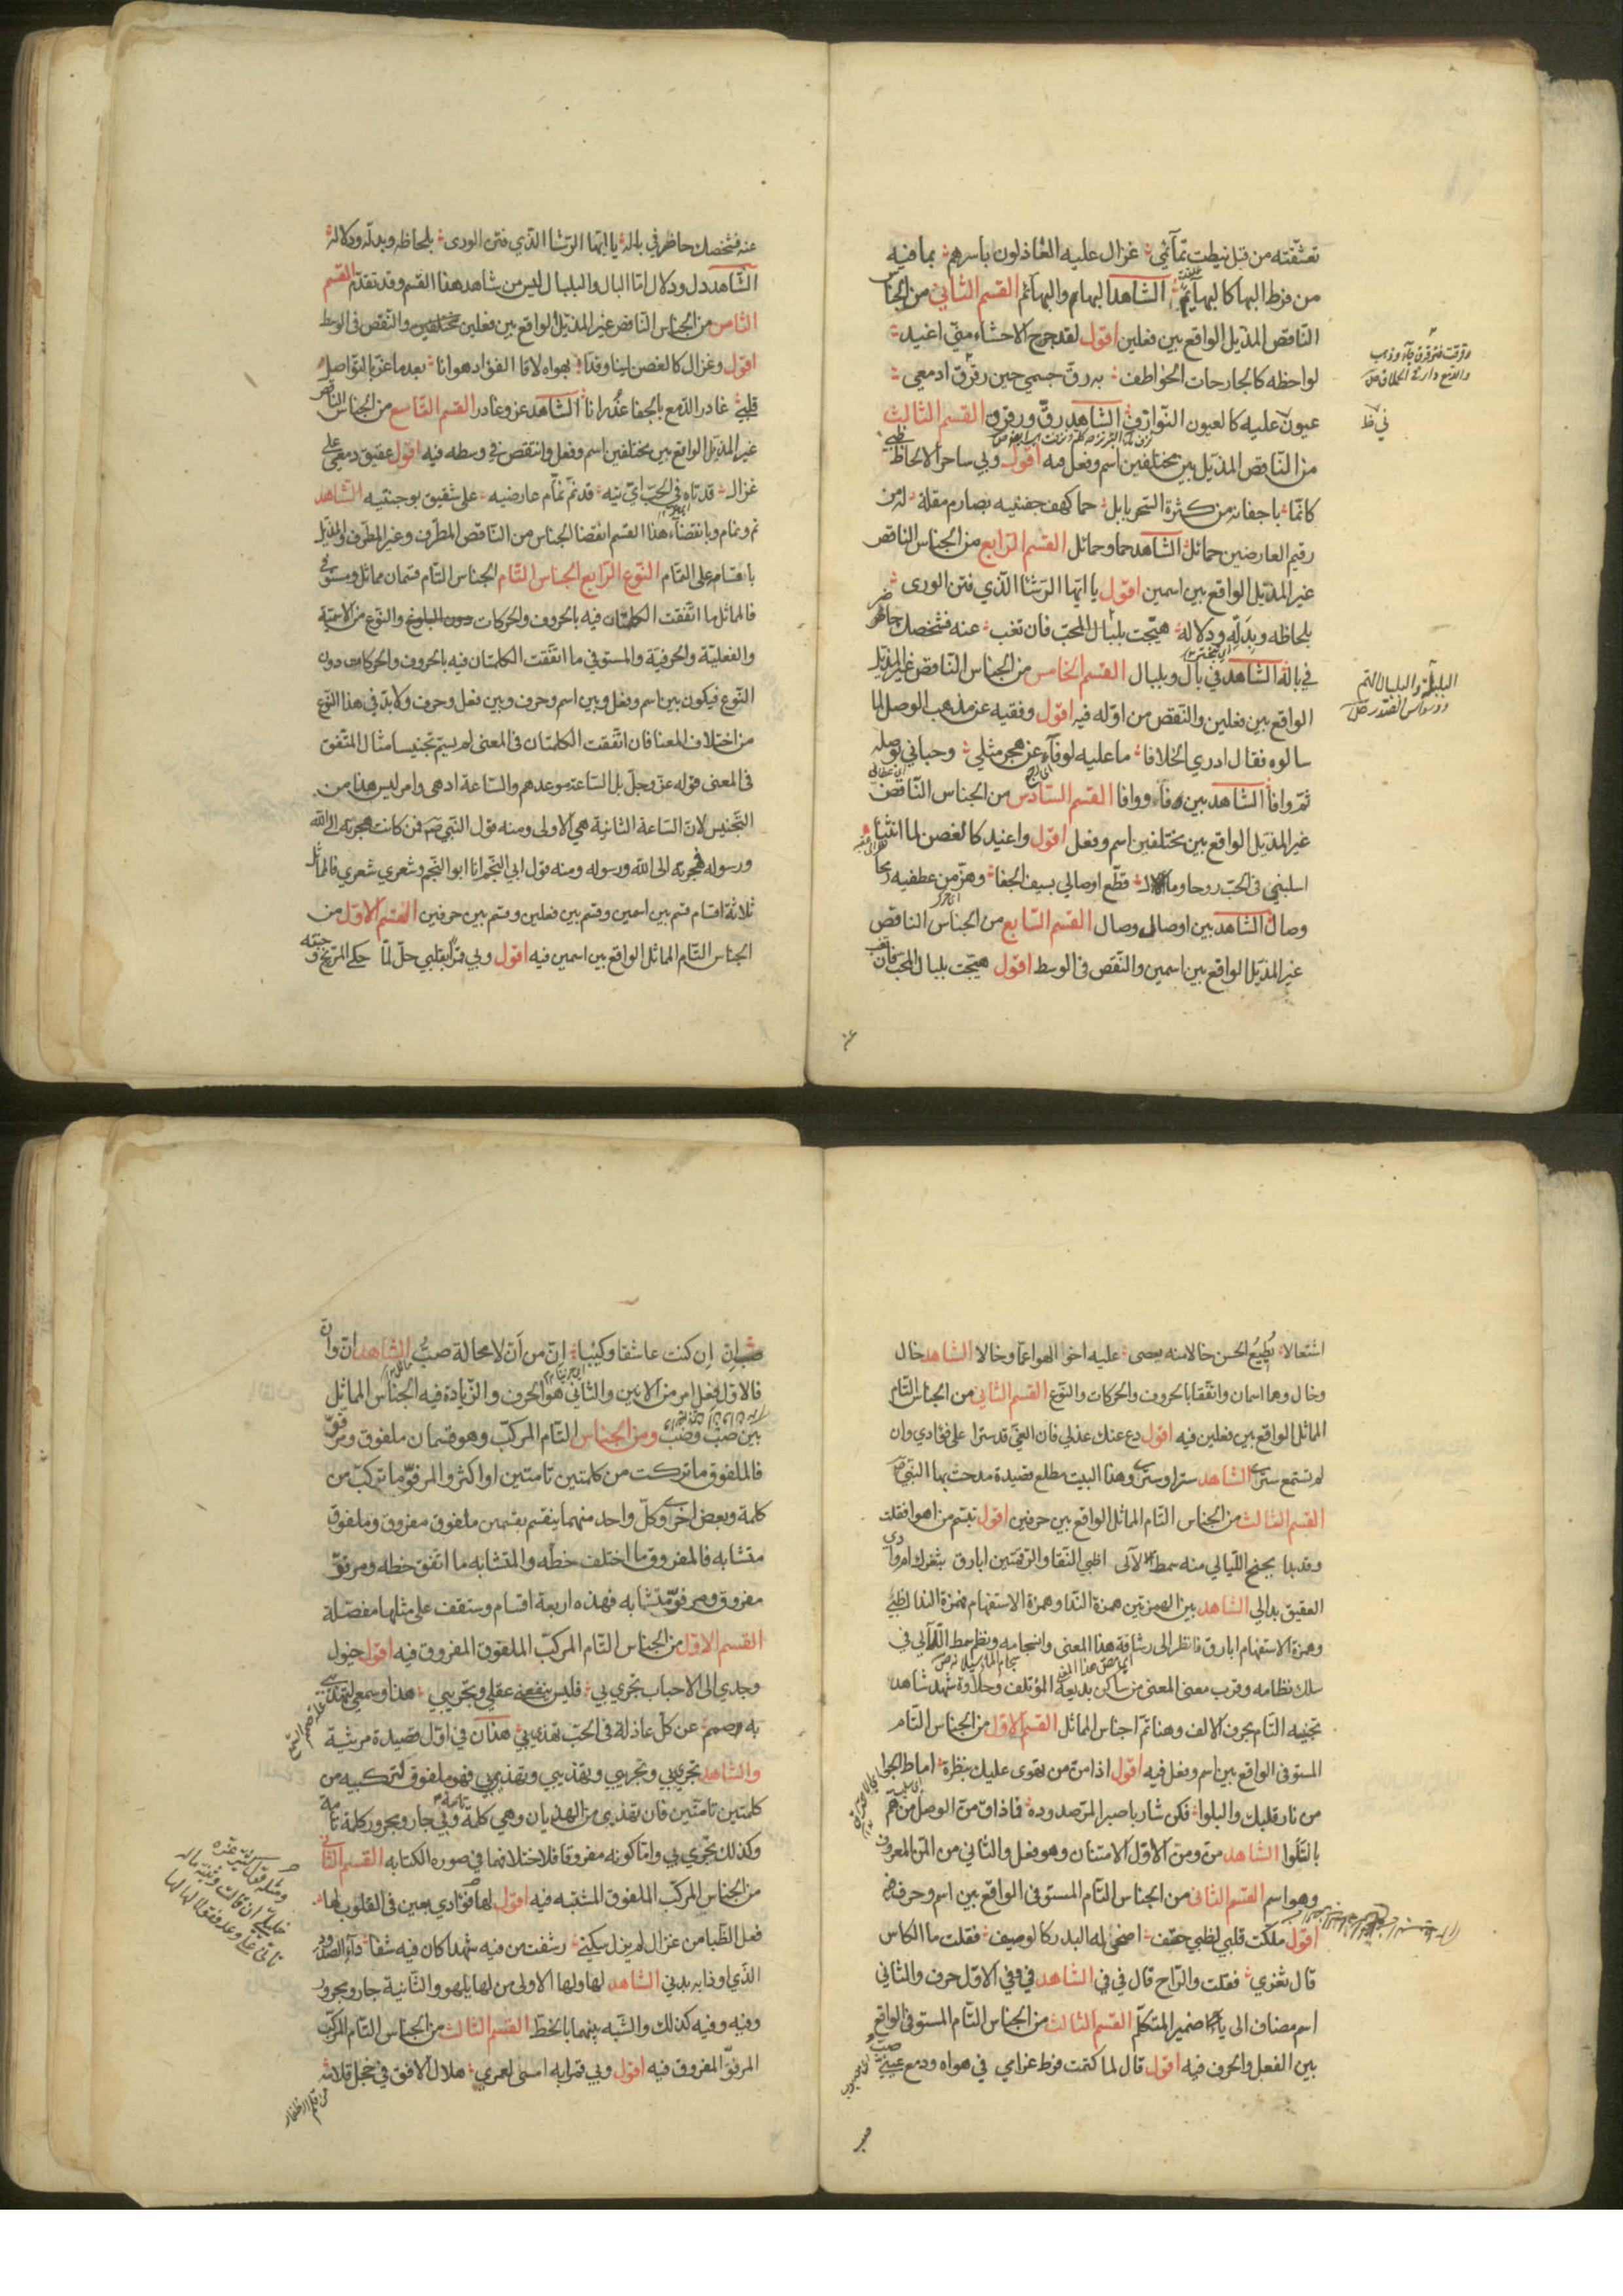 تعشّقته من قبل نيطت تمآئمي غزال عليه العاذلون باسرهم بما فيه
من فرط البها كالبهآئم الشاهد البها والبهائم القسم الثاني من الجناس
الناقص المذيّل الواقع بين فعلين اقول لقد جرح الاحشاء منّي اغيد
لواحظه كالجارحات الخواطف به رقّ جسمي حين رقرق ادمعي
عيون عليه كالعيون النوازف الشاهد رقّ ورقرق القسم الثالث
من الناقص المذيّل بين مختلفين اسم وفعل فيه اقول وبي ساحر الالحاظ ظبي
كانّما باجفانه من كثرة السحر بابل حما كهف جفنيه بصارم مقلة له من
رقيم العارضين حمائل الشاهد حما وحمائل القسم الرابع من الجناس الناقص
غير المذيّل الواقع بين اسمين اقول يا ايّها الرشا الّذي فتن الورى
بلحاظه وبدلّه ودلاله هيّجت بلبال المحبّ فان تغب عنه فشخصك حاضر
في باله الشاهد في بال وبلبال القسم الخامس من الجناس الناقص غير المذيّل
الواقع بين فعلين والنقص من اوّله فيه اقول وفقيه عن مذهب الوصل لما
سالوه فقال ادري الخلافا ما عليه لو فآء عن هجر مثلي وحباني بوصله
ثمّ وافا الشاهد بين فآء ووافا القسم السادس من الجناس الناقص
غير المذيّل الواقع بين مختلفين اسم وفعل اقول واغيد كالغصن لما انثنا
اسلبني في الحبّ روحا ومال قطّع اوصالي بسيف الجفا وهزّ من عطفيه رمحا
وصال الشاهد بين اوصال وصال القسم السابع من الجناس الناقص
غير المذيّل الواقع بين اسمين والنقص في الوسط اقول هيّجت بلبال المحبّ فان تغب
عنه
عنه فشخصك حاظر في باله يا ايّها الرشا الّذي فتن الورى بلحاظه وبدلّه ودلاله
الشاهد دل ودلال امّا البال والبلبال ليس من شاهد هذا القسم وقد تقدّم القسم
الثامن من الجناس الناقص غير المذيّل الواقع بين فعلين مختلفين والنقص في الوسط
اقول وغزال كالغصن لينا وقدّا بهواه لاقا الفؤاد هوانا بعد ما عزّ بالتواصل
قلبي غادر الدمع بالجفا غدرانا الشاهد عز وغادر القسم التاسع من الجناس الناقص
غير المذيّل الواقع بين مختلفين اسم وفعل والنقص في وسطه فيه اقول عقيق دمعي على
غزال قد تاه في الحبّ ايّ تيه قد نمّ نمّام عارضيه على شقيق بوجنتيه الشاهد
نم ونمام وبانقضاء هذا القسم انقضا الجناس من الناقص المطرّف وغير المطرّف والمذيّل
باقسام على التمام النوع الرابع الجناس التام الجناس التام قسمان مماثل ومستوفي
فالماثل ما اتّفقت الكلمتان فيه بالحروف والحركات والنوع من الاسميّة
والفعليّة والحرفيّة والمستوفي ما اتّفقت الكلمتان فيه بالحروف والحركات دون
النوع فيكون بين اسم وفعل وبين اسم وحرف وبين فعل وحرف ولا بدّ في هذا النوع
من اختلاف المعنا فان اتّفقت الكلمتان في المعنى لم يسمّ تجنيسا مثال المتّفق
في المعنى قوله عزّ وجلّ بل الساعة موعدهم والساعة ادهى وامر ليس هذا من
التجنيس لانّ الساعة الثانية هي الاولى ومنه قول النبي ص فمن كانت هجرته الى الله
ورسوله فهجرته الى الله ورسوله ومنه قول ابي النجم انا ابو النجم وشعري شعري فالماثل
ثلاثة اقسام قسم بين اسمين وقسم بين فعلين وقسم بين حرفين القسم الاول من
الجناس التام المماثل الواقع بين اسمين فيه اقول وبي قمر بقلبي حلّ لمّا حكى المرّيخ وجنته
اشتعالا بديع الحسن خالا منه يحمى عليه اخو الهوا عمّا وخالا الشاهد خال
وخال وهما اسمان واتّفقا بالحروف والحركات والنوع القسم الثاني من الجناس التام
الماثل الواقع بين فعلين فيه اقول دع عنك عذلي فان الغيّ قد سترا على فؤادي وان
لم تستمع سترى الشاهد سترا وسترى وهذا البيت مطلع قصيدة مدحت بها النبي ص
القسم الثالث من الجناس التام الماثل الواقع بين حرفين اقول تبسّم من اهوا فقلت
وقد بدا بجنح الليالي منه سمط لآلى اظبي النقا والرقمتين ابارق بثغرك ام وادي
العقيق بدالي الشاهد بين الهمزتين همزة الندا وهمزة الاستفهام فهمزة الندا اظبي
وهمزة الاستفهام ابارق فانظر الى رشاقة هذا المعنى وانسجامه ونظم سمط اللآلي في
سلك نظامه وقرب معنى المعنى من ساكن بديعه المؤتلف وحلاوة شهد شاهد
تجنيه التام بحرف الالف وهنا تمّ اجناس الماثل القسم الاول من الجناس التام
المستوفي الواقع بين اسم وفعل فيه اقول اذا منّ من تهوى عليك بنظرة اماط الجوا
من نار قلبك والبلوا فكن شاربا صبرا لمرّ صدوده فما ذاق منّ الوصل من همّ
بالسلوا الشاهد منّ ومنّ الاول الامتنان وهو فعل والثاني من المنّ المعروف
وهو اسم القسم الثاني من الجناس التام المستوفي الواقع بين اسم وحرف فيه
اقول ملكت قلبي لظبي حقف اضحى له البدر كالوصيف فقلت ما الكاس
قال ثغري فقلت والراح قال في في الشاهد في وفي الاول حرف والثاني
اسم مضاف الى ياء ضمير المتكلم القسم الثالث من الجناس التام المستوفي الواقع
بين الفعل والحرف فيه اقول قال لما كتمت فرط غرامي في هواه ودمع عيني صبّ
ان إن كنت عاشقا وكئيبا إنّ من أنّ لا محالة صبّ الشاهد انّ وان
فالاوّل فعل امر من الانين والثاني هو الحرف والزيادة فيه الجناس الماثل
بين صبّ وصبّ ومن الجناس التام المركّب وهو قسمان ملفوق ومرفوّ
فالملفوق ما تركّبت من كلمتين تامّتين او اكثر والمرفوّ ما تركّب من
كلمة وبعض اخرى وكلّ واحد منهما ينقسم بقسمين ملفوق مفروق وملفوق
متشابه فالمفروق ما اختلف خطّه والمتشابه ما اتّفق خطه ومرفوّ
مفروق ومرفوّ متشابه فهذه اربعة اقسام وستقف على مثلها مفصّلة
القسم الاول من الجناس التام المركّب الملفوق المفروق فيه اقول خيول
وجدي الى الاحباب تجري بي فليس ينفعني عقلي وتجريبي هذا وسمعي
به صمم عن كلّ عاذلة في الحبّ تهذي بي هذان في اوّل قصيدة مرثية
والشاهد تجري بي وتجريبي وتهذيبي وتهذي بي فهو ملفوق لتركيبه من
كلمتين تامّتين فان تهذي من الهذيان وهي كلمة وبي جار ومجرور كلمة تامة
وكذلك تجري بي وامّا كونه مفروقا فلاختلافهما في صورة الكتابه القسم الثاني
من الجناس المركّب الملفوق المشتبه فيه اقول لها فؤادي بعين في القلوب لها
فعل الظبا من غزال لم يزل بيكيني رشفت من فيه شهدا كان فيه شفا
الذي اودا به بدني الشاهد لها ولها الاولى من لها يلهو والثانية جار ومجرور
وفيه وفيه كذلك والشبه بينهما بالخطّ القسم الثالث من الجناس التام المركّب
المرفوّ المفروق فيه اقول وبي قمرا به امسى لعمري هلال الافق في خجل قلامه